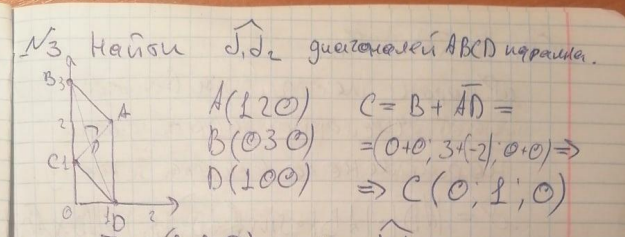 №3 Найти d₁^d₂ диагоналей ABCD паралл.
B 3
2
A
C 1
0 1 D 2
A(1 2 0) C = B + AD =
B(0 3 0) =(0+0; 3+(-2); 0+0) =>
D(1 0 0) => C(0; 1; 0)